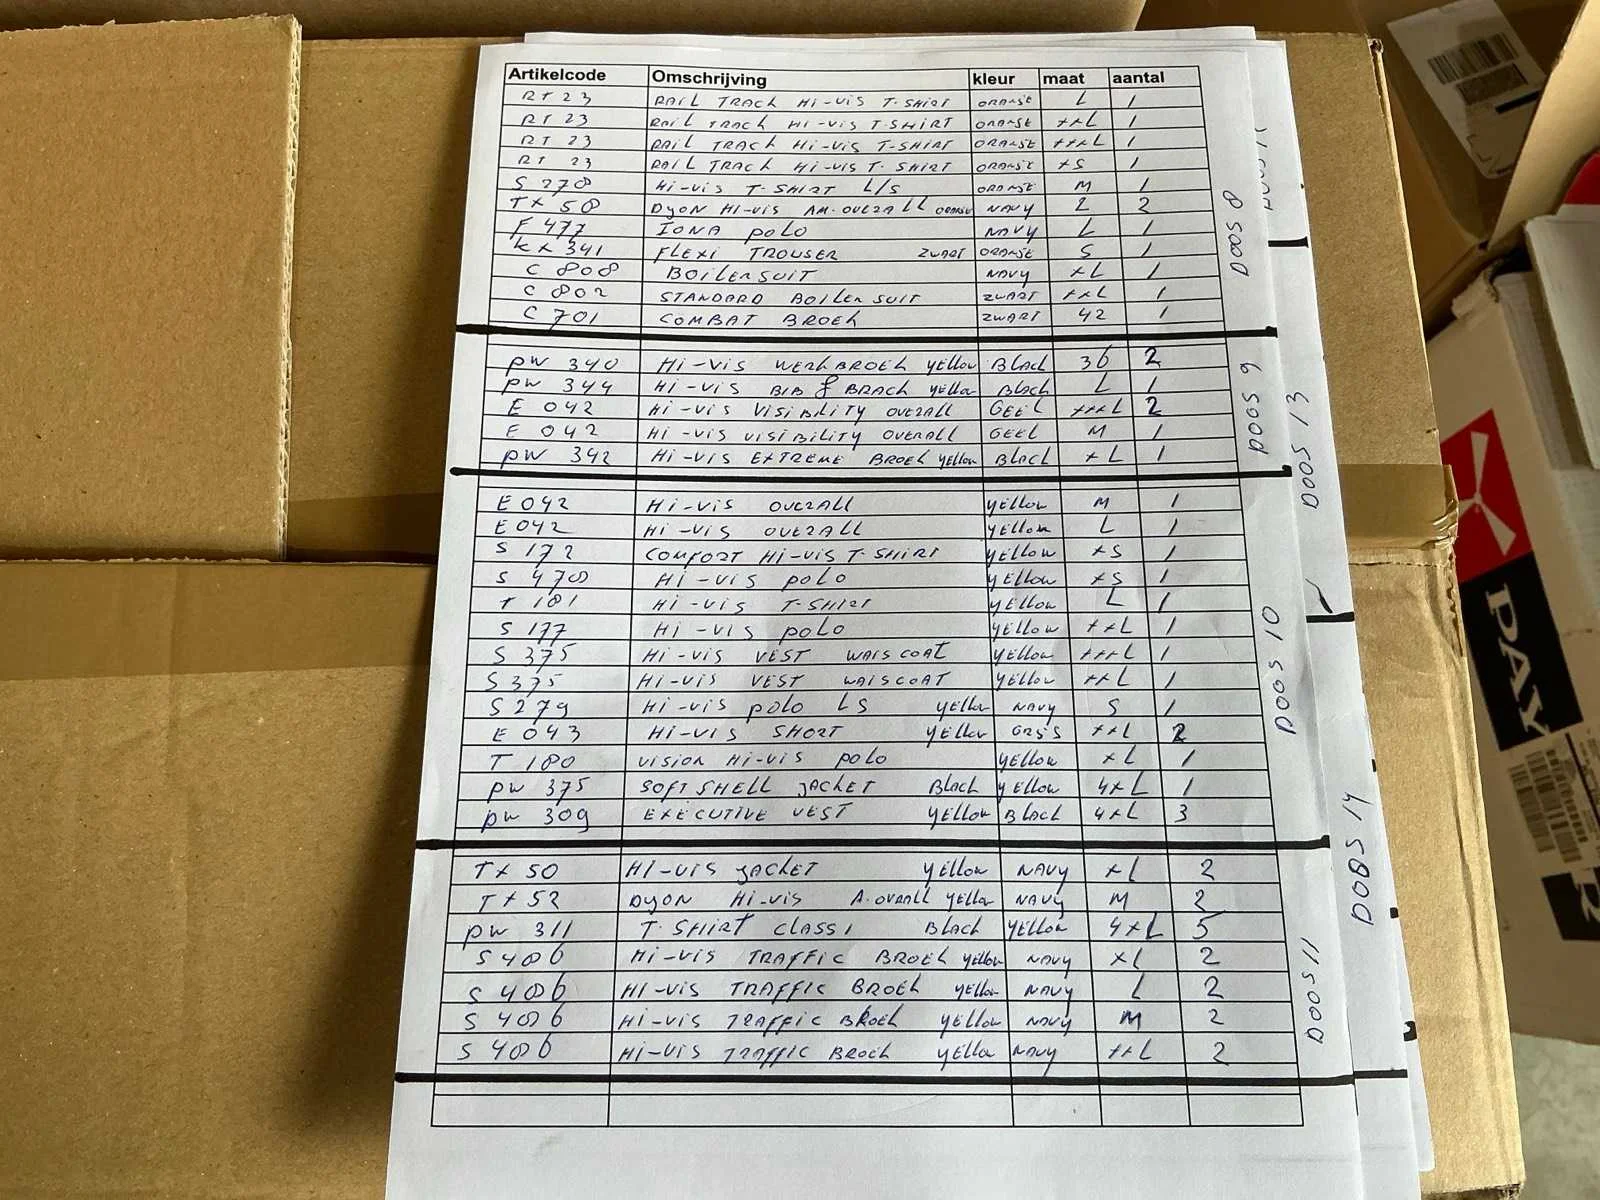 Artikelcode Omschrijving kleur maat aantal
RT 23 RAIL TRACK Hi-Vis T-SHIRT ORANJE L 1
RT 23 RAIL TRACK Hi-Vis T-SHIRT ORANJE XXL 1
RT 23 RAIL TRACK Hi-Vis T-SHIRT ORANJE XXXL 1
RT 23 RAIL TRACK Hi-Vis T-SHIRT ORANJE XS 1
S 278 Hi-Vis T-SHIRT L/S ORANJE M 1
TX 50 DYON Hi-Vis AM. OVERALL ORANJE NAVY 2 2
F 477 IONA POLO NAVY L 1
KX 341 FLEXI TROUSER ZWART ORANJE S 1
C 808 BOILERSUIT NAVY XL 1
C 802 STANDARD BOILERSUIT ZWART XXL 1
C 701 COMBAT BROEK ZWART 42 1
DOOS 8
PW 340 Hi-Vis WERKBROEK YELLOW BLACK 36 2
PW 344 Hi-Vis BIB & BRACK YELLOW BLACK L 1
E 042 Hi-Vis VISIBILITY OVERALL GEEL XXXL 2
E 042 Hi-Vis VISIBILITY OVERALL GEEL M 1
PW 342 Hi-Vis EXTREME BROEK YELLOW BLACK XL 1
DOOS 9
E 042 Hi-Vis OVERALL YELLOW M 1
E 042 Hi-Vis OVERALL YELLOW L 1
S 172 COMFORT Hi-Vis T-SHIRT YELLOW XS 1
S 478 Hi-Vis POLO YELLOW XS 1
T 181 Hi-Vis T-SHIRT YELLOW L 1
S 177 Hi-Vis POLO YELLOW XXL 1
S 375 Hi-Vis VEST WAISCOAT YELLOW XXXL 1
S 375 Hi-Vis VEST WAISCOAT YELLOW XXL 1
S 279 Hi-Vis POLO LS YELLOW NAVY S 1
E 043 Hi-Vis SHORT YELLOW GRIJS XXL 2
T 180 VISION Hi-Vis POLO YELLOW XL 1
PW 375 SOFTSHELL JACKET BLACK YELLOW 4XL 1
PW 309 EXECUTIVE VEST YELLOW BLACK 4XL 3
DOOS 10
TX 50 Hi-Vis JACKET YELLOW NAVY XL 2
TX 52 DYON Hi-Vis A. OVRALL YELLOW NAVY M 2
PW 311 T-SHIRT CLASS 1 BLACK YELLOW 4XL 5
S 486 Hi-Vis TRAFFIC BROEK YELLOW NAVY XL 2
S 486 Hi-Vis TRAFFIC BROEK YELLOW NAVY L 2
S 486 Hi-Vis TRAFFIC BROEK YELLOW NAVY M 2
S 486 Hi-Vis TRAFFIC BROEK YELLOW NAVY XXL 2
DOOS 11
DOOS 13
DOOS 14
DAY